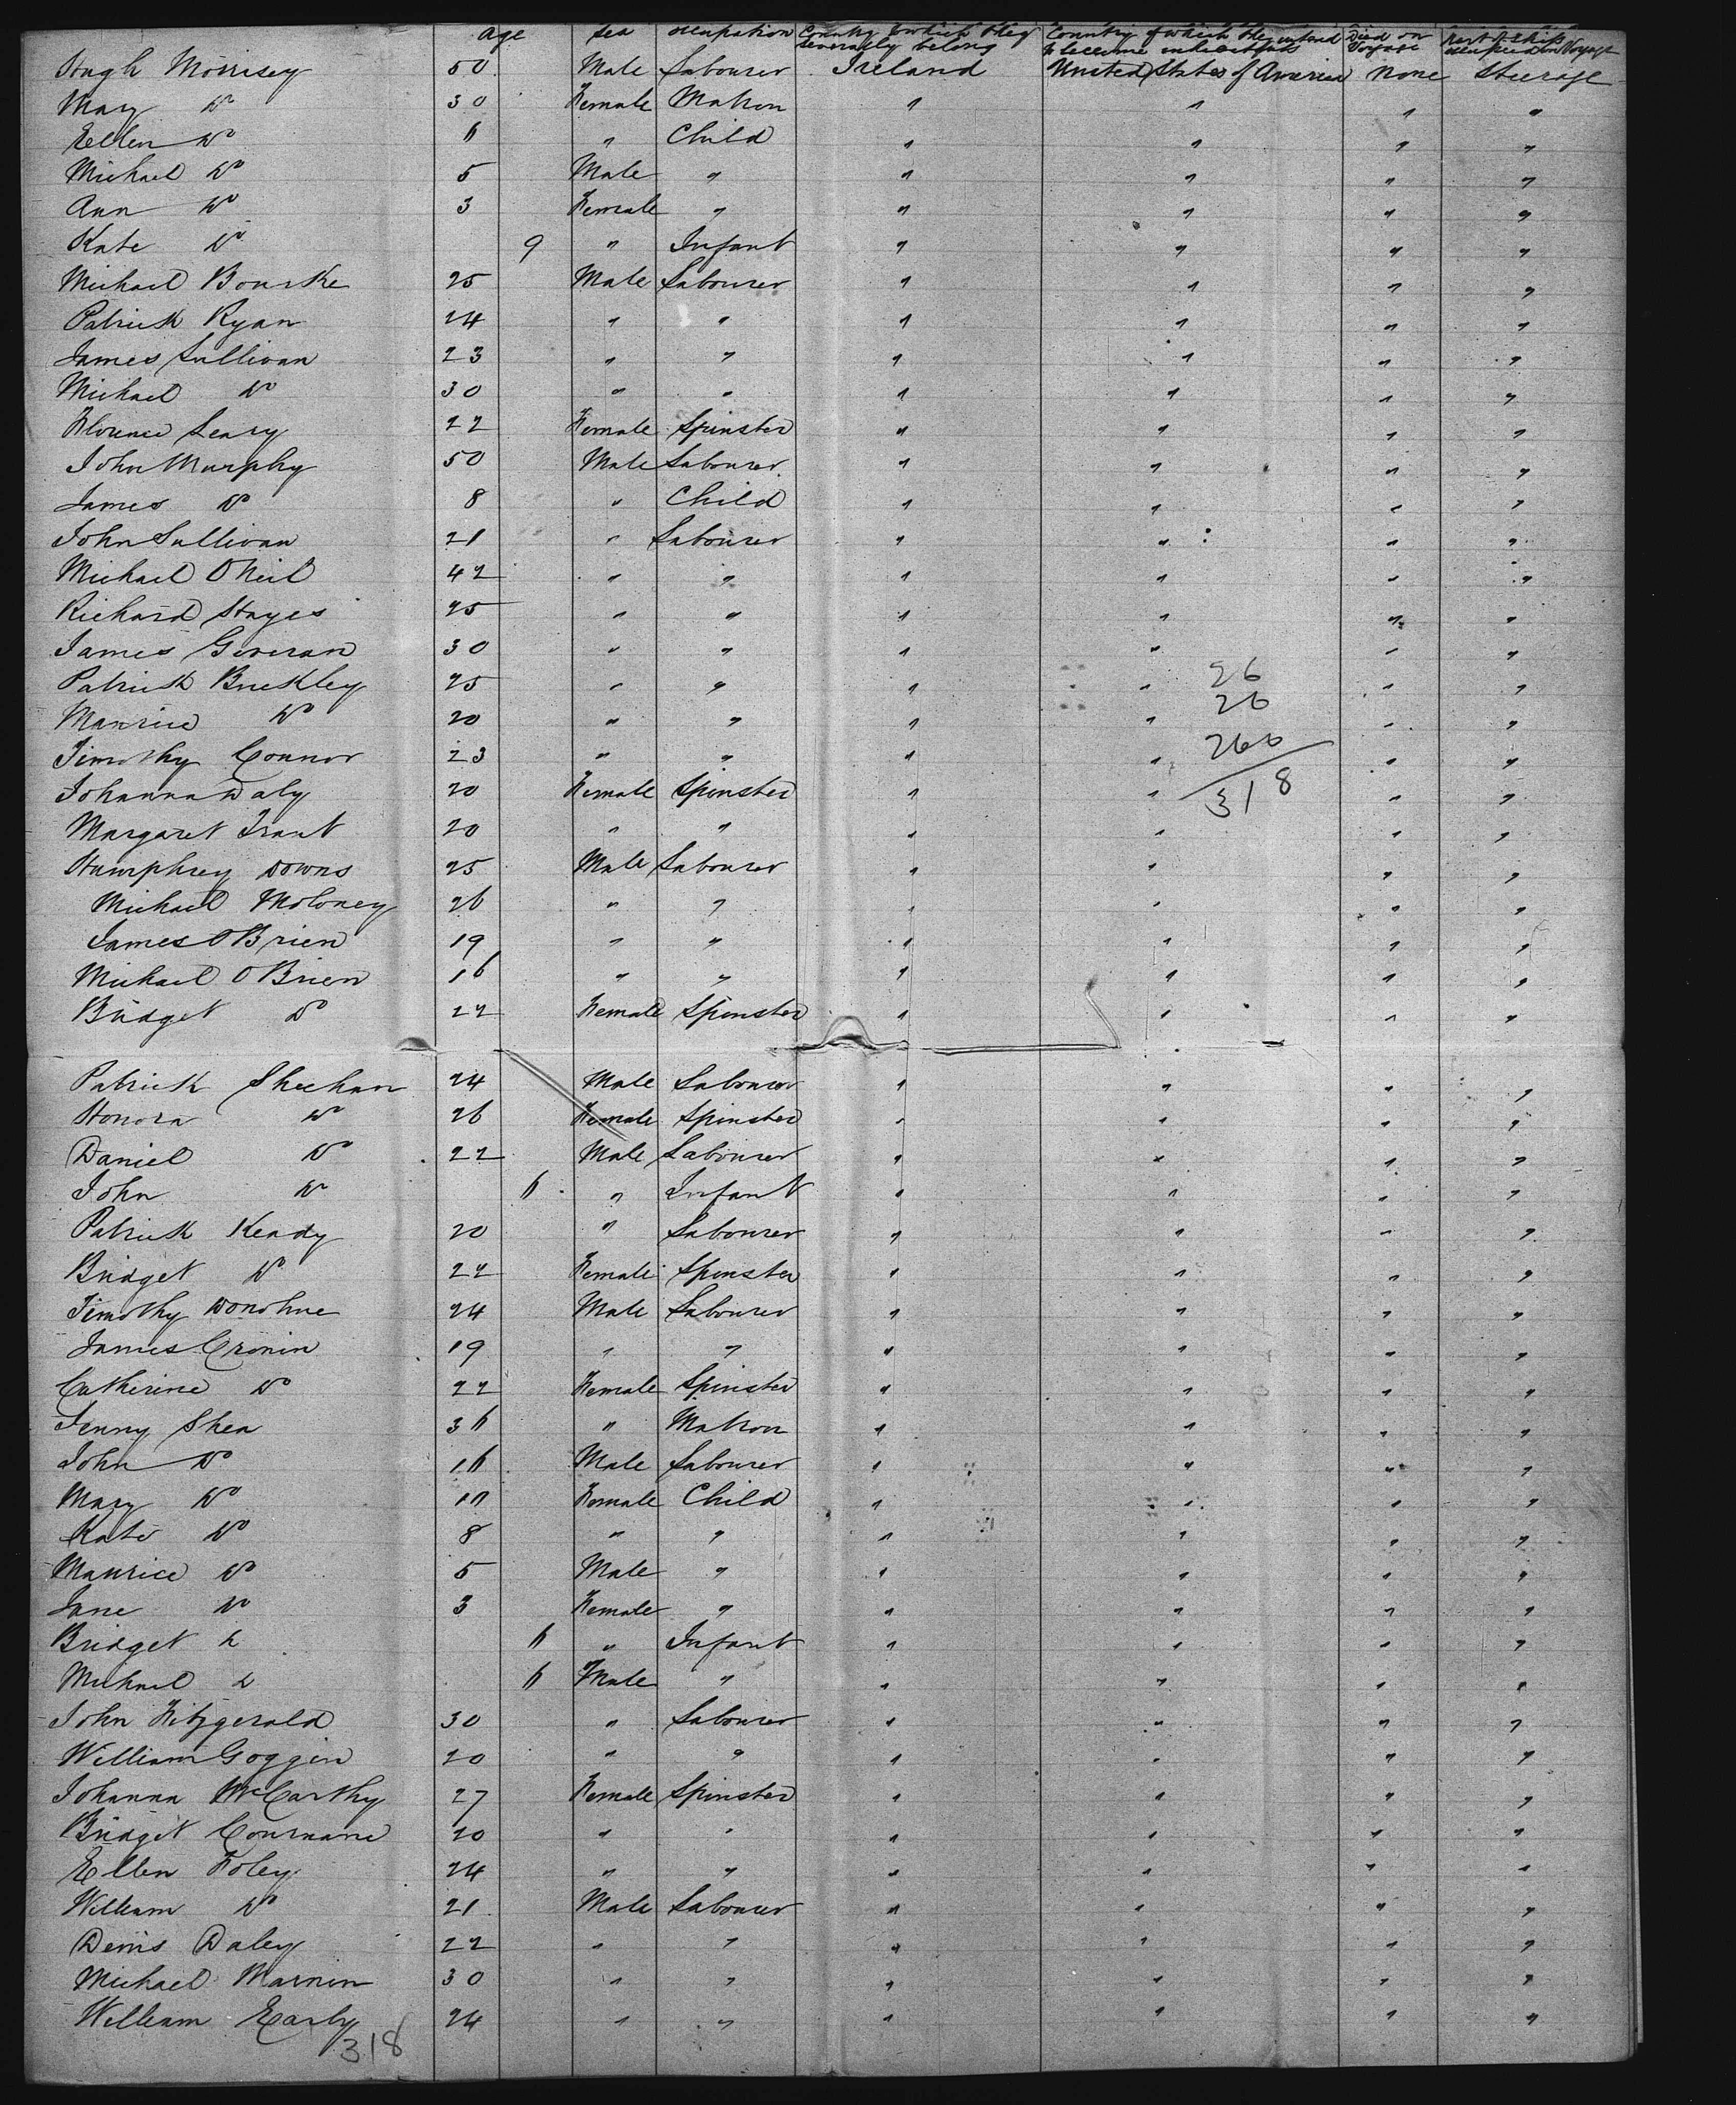 age sex occupation Country to which they severally belong Country of which they intend to become inhabitants Died on Voyage Part of ship occupied on Voyage
Hugh Morrisey 50 Male Labourer Ireland United States of America None Steerage
Mary Do 30 Female Matron " " " "
Ellen Do 6 " Child " " " "
Michael Do 5 Male " " " " "
Ann Do 3 Female " " " " "
Kate Do 9 " Infant " " " "
Michael Bourke 25 Male Labourer " " " "
Patrick Ryan 24 " " " " " "
James Sullivan 23 " " " " " "
Michael Do 30 " " " " " "
Florence Leary 22 Female Spinster " " " "
John Murphy 50 Male Labourer " " " "
James Do 8 " Child " " " "
John Sullivan 21 " Labourer " " " "
Michael O Neil 42 " " " " " "
Richard Hayes 25 " " " " " "
James 30 " " " " " "
Patrick Buckley 25 " " " " 26 " "
Maurice Do 20 " " " " 26 " "
Timothy Connor 23 " " " " 266 " "
Johanna Daly 20 Female Spinster " " 318 " "
Margaret Grant 20 " " " " " "
Humphrey Downs 25 Male Labourer " " " "
Michael Moloney 26 " " " " " "
James O Brien 19 " " " " " "
Michael O Brien 16 " " " " " "
Bridget Do 22 Female Spinster " " " "
Patrick Sheehan 24 Male Labourer " " " "
Honora Do 26 Female Spinster " " " "
Daniel Do 22 Male Labourer " " " "
John Do 6 " Infant " " " "
Patrick Keady 20 " Labourer " " " "
Bridget Do 22 Female Spinster " " " "
Timothy Donohue 24 Male Labourer " " " "
James Cronin 19 " " " " " "
Catherine Do 22 Female Spinster " " " "
Jenny Shea 36 " Matron " " " "
John Do 16 Male Labourer " " " "
Mary Do Female Child " " " "
Kate Do 8 " " " " " "
Maurice Do 5 Male " " " " "
Jane Do 3 Female " " " " "
Bridget 6 " Infant " " " "
Michael 6 Male " " " " "
John Fitzgerald 30 " Labourer " " " "
William Goggin 20 " " " " " "
Johanna McCarthy 27 Female Spinster " " " "
Bridget Cournane 20 " " " " " "
Ellen Foley 24 " " " " " "
William Do 21 Male Labourer " " " "
Denis Daley 22 " " " " " "
Michael Marnin 30 " " " " " "
William Early 24 " " " " " "
318